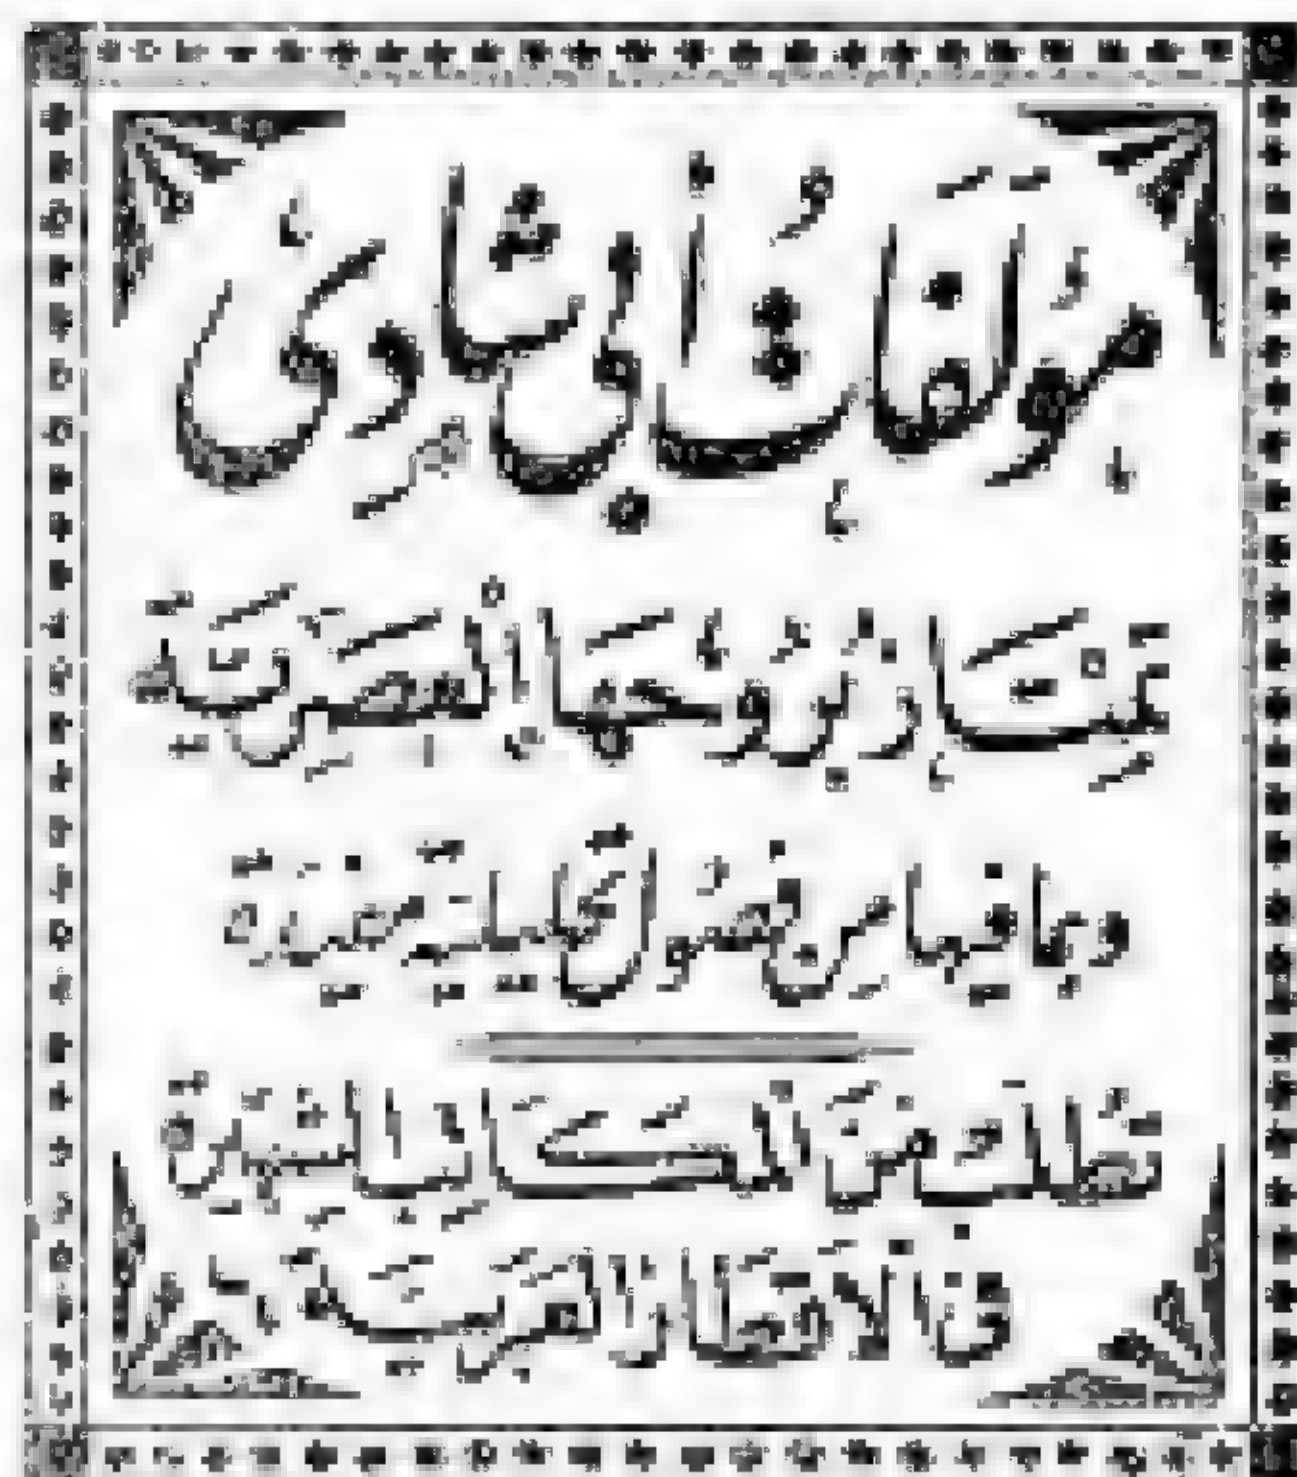 مؤلفات أبي شادي
تمتاز بروحها العصرية
وبما فيها من فصول تحليلية مفيدة
تطلب من المكاتب الشهيرة
في الأقطار العربية